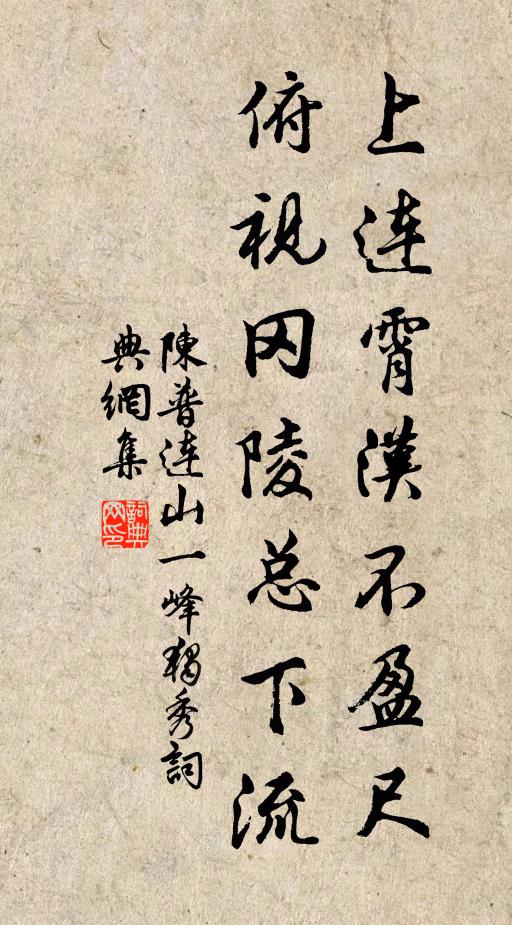 上連霄漢不盈尺
俯視冈陵总下流
陳普連山一峰獨秀詞
典網集
詞典
网印